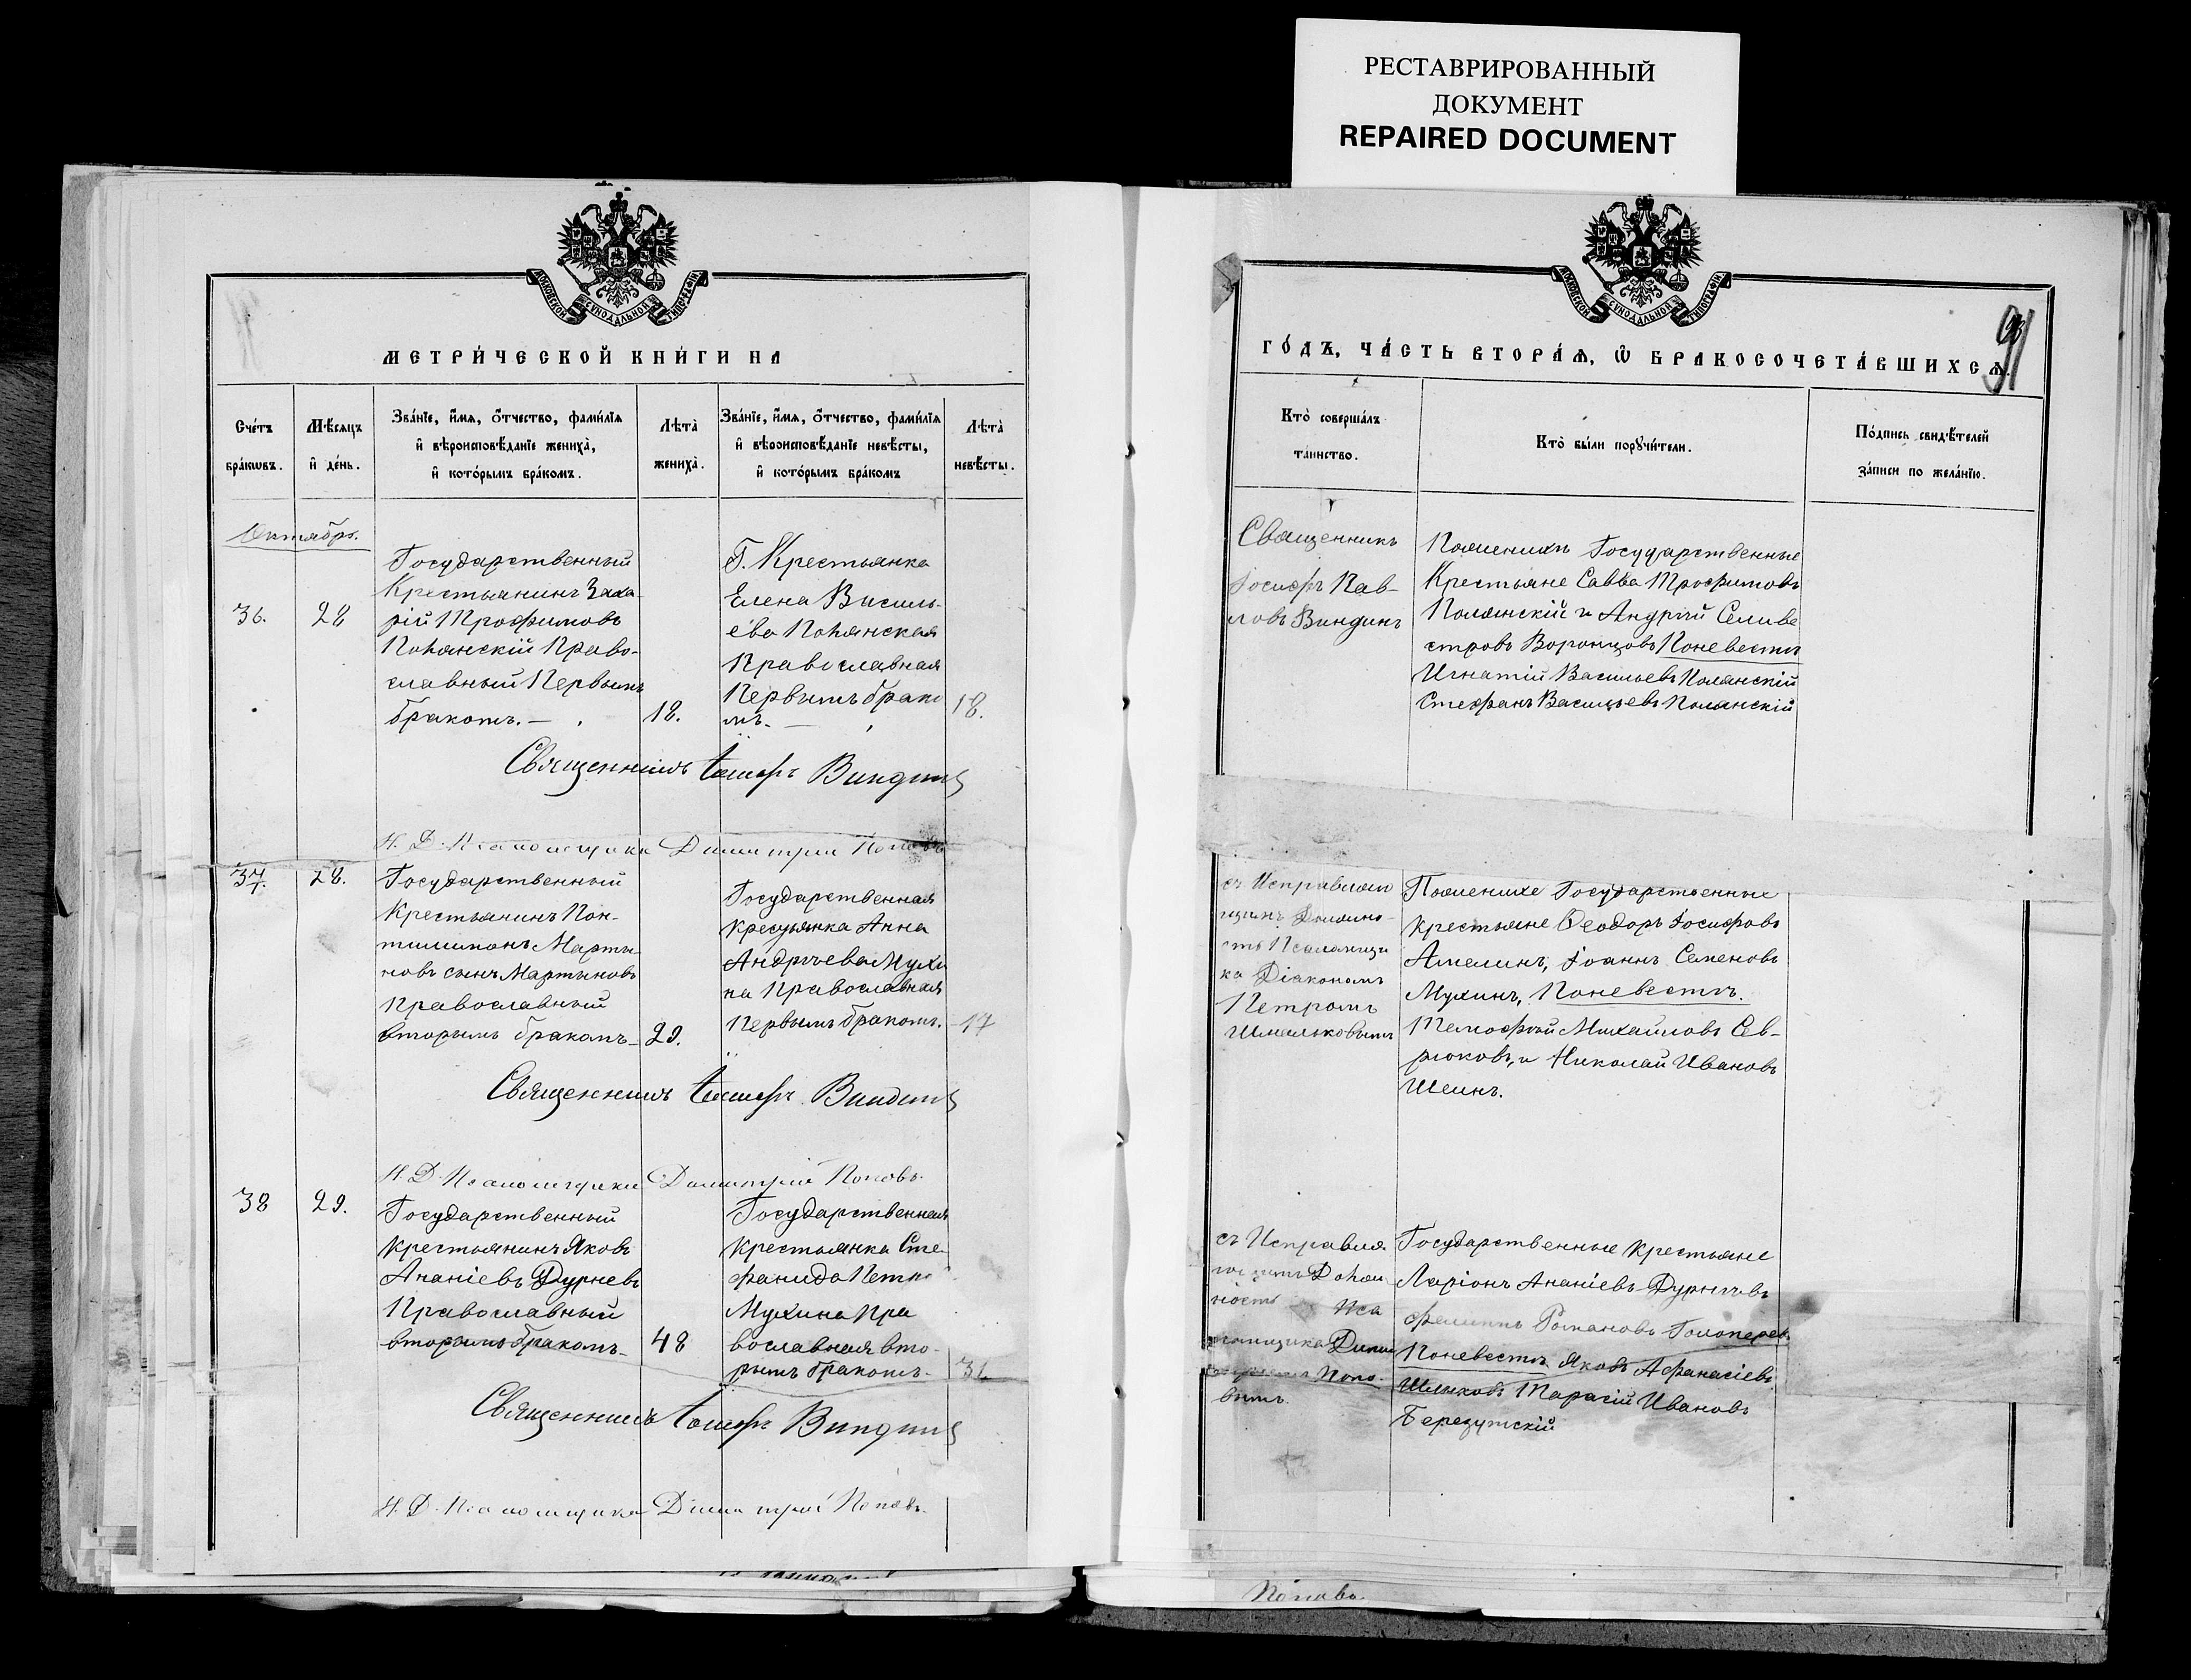 РЕСТАВРИРОВАННЫЙ
ДОКУМЕНТ
REPAIRED DOCUMENT
МОСКОВСКОЙ СѴНОДАЛЬНОЙ ТИПОГРАФІИ
МЕТРИ́ЧЕСКОЙ КНИ́ГИ НА
Сче́тъ
бра́кωвъ.
Мѣ́сяцъ
и҆ де́нь.
Зва́нїе, и҆́мѧ, ѻ҆́тчество, фами́лїѧ
и҆ вѣроисповѣ́данїе жениха̀,
и҆ кото́рымъ бра́комъ.
Лѣта̀
жениха̀.
Зва́нїе, и҆́мѧ, ѻ҆́тчество, фами́лїѧ
и҆ вѣроисповѣ́данїе невѣ́сты,
и҆ кото́рымъ бра́комъ
Лѣта̀
невѣ́сты.
Октябрь.
36.
28
Государственный
Крестьянинъ Заха-
рій Трофимовъ
Полянскій Право-
славный Первымъ
бракомъ. —
18.
Г. Крестьянка
Елена Василь-
ева Полянская
Православная
Первымъ брако
мъ. —
18.
Священникъ Іосифъ Виндинъ
И. Д. Псаломщика Димитрій Поповъ
37.
28.
Государственный
Крестьянинъ Пон-
тилимонъ Марты-
новъ сынъ Мартыновъ
Православный
вторымъ бракомъ
29.
Государственная
Крестьянка Анна
Андрѣева Мухи
на Православная
Первымъ бракомъ.
17
Священникъ Іосифъ Виндинъ
И. Д. Псаломщика Димитрій Поповъ.
38
29.
Государственный
Крестьянинъ Яковъ
Ананіевъ Дурневъ
Православный
вторымъ бракомъ
48
Государственная
Крестьянка Сте
фанида Петро
Мухина Пра
вославная вто-
рымъ бракомъ.
Священникъ Іосифъ Виндинъ
И. Д. Псаломщика Димитрій Поповъ.
МОСКОВСКОЙ СѴНОДАЛЬНОЙ ТИПОГРАФІИ
91
ГО́ДЪ, ЧА́СТЬ ВТОРА́Ѧ, Ѽ БРАКОСОЧЕТА́ВШИХСѦ.
Кто̀ соверша́лъ
та́инство.
Кто̀ бы́ли порꙋчи́тели.
По́дпись свидѣ́телей
за́писи по жела́нїю.
Священникъ
Іосифъ Пав-
ловъ Виндинъ
Пожениху Государственные
Крестьяне Савва Трофимовъ
Полянскій и Андрѣй Селиве
стровъ Воронцовъ Поневестѣ
Игнатій Васильевъ Полянскій
Стефанъ Васильевъ Полянскій
съ Исправляю
щимъ Должно-
сть Псаломщи
ка Діакономъ
Петромъ
Шмальковымъ
Поженихе Государственные
Крестьяне Ѳеодоръ Іосифовъ
Амелинъ, Іоаннъ Семеновъ
Мухинъ, Поневестѣ.
Тимофѣй Михайловъ Сев-
рюковъ, и Николай Ивановъ
Шеинъ.
съ Исправля
Должн
ность Пса
ломщика Дими
Попо-
вымъ.
Государственные Крестьяне
Ларіонъ Ананіевъ Дурневъ
Филиппъ Романовъ
Поневестѣ Яковъ Афанасіевъ
Тарасій Ивановъ
Березутскій
Поповъ.